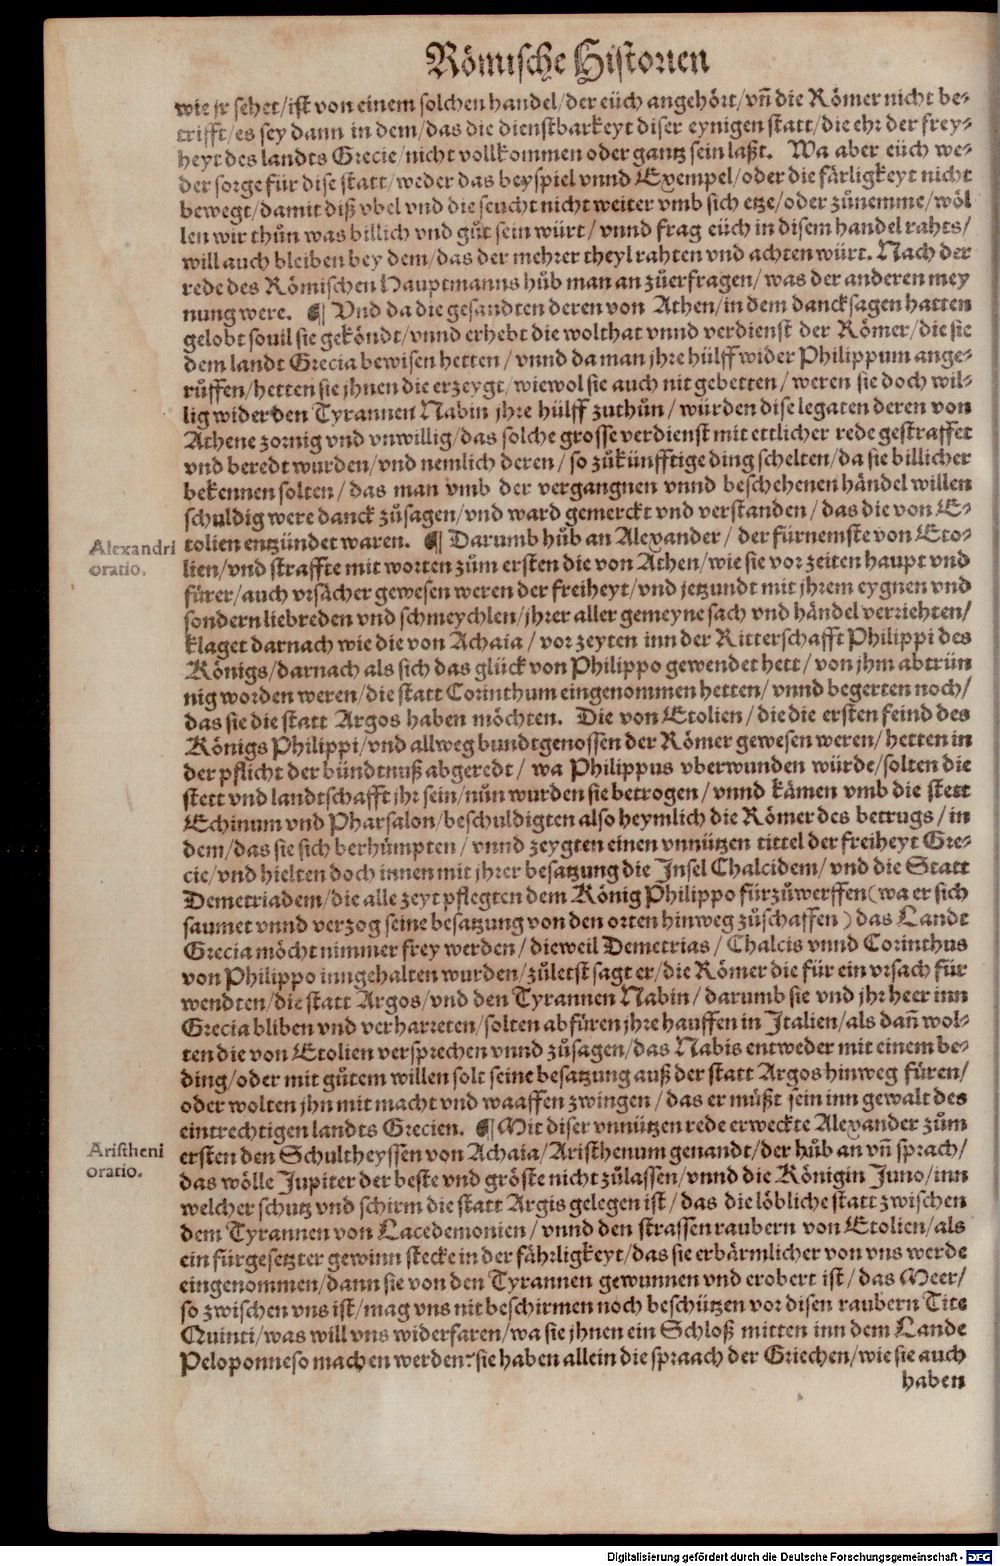 Römische Historien
wie jr sehet/ist von einem solchen handel/der eüch angehört/vñ die Römer nicht be-
trifft/es sey dann in dem/das die dienstbarkeyt diser eynigen statt/die ehr der frey-
heyt des landts Grecie/nicht vollkommen oder gantz sein laßt. Wa aber eüch we-
der sorge für dise statt/weder das beyspiel vnnd Exempel/oder die färligkeyt nicht
bewegt/damit diß vbel vnd die seucht nicht weiter vmb sich etze/oder zůnemme/wöl
len wir thůn was billich vnd gůt sein würt/vnnd frag eüch in disem handel rahts/
will auch bleiben bey dem/das der mehrer theyl rahten vnd achten würt. Nach der
rede des Römischen Hauptmanns hůb man an zůerfragen/was der anderen mey
nung were. ¶ Vnd da die gesandten deren von Athen/in dem dancksagen hatten
gelobt souil sie geköndt/vnnd erhebt die wolthat vnnd verdienst der Römer/die sie
dem landt Grecia bewisen hetten/vnnd da man jhre hülff wider Philippum ange-
růffen/hetten sie jhnen die erzeygt/wiewol sie auch nit gebetten/weren sie doch wil-
lig wider den Tyrannen Nabin jhre hülff zuthůn/würden dise legaten deren von
Athene zornig vnd vnwillig/das solche grosse verdienst mit ettlicher rede gestraffet
vnd beredt wurden/vnd nemlich deren/so zůkünfftige ding schelten/da sie billicher
bekennen solten/das man vmb der vergangnen vnnd beschehenen händel willen
schuldig were danck zůsagen/vnd ward gemerckt vnd verstanden/das die von E-
tolien entzündet waren. ¶ Darumb hůb an Alexander/der fürnemste von Eto-
Alexandri
oratio.
lien/vnd straffte mit worten zům ersten die von Athen/wie sie vor zeiten haupt vnd
fürer/auch vrsächer gewesen weren der freiheyt/vnd jetzundt mit jhrem eygnen vnd
sondern liebreden vnd schmeychlen/jhrer aller gemeyne sach vnd händel verriehten/
klaget darnach wie die von Achaia/vor zeyten inn der Ritterschafft Philippi des
Königs/darnach als sich das glück von Philippo gewendet hett/von jhm abtrün
nig worden weren/die statt Corinthum eingenommen hetten/vnnd begerten noch/
das sie die statt Argos haben möchten. Die von Etolien/die die ersten feind des
Königs Philippi/vnd allweg bundtgenossen der Römer gewesen weren/hetten in
der pflicht der bündtnuß abgeredt/wa Philippus vberwunden würde/solten die
stett vnd landtschafft jhr sein/nůn wurden sie betrogen/vnnd kämen vmb die stett
Echinum vnd Pharsalon/beschuldigten also heymlich die Römer des betrugs/in
dem/das sie sich berhůmpten/vnnd zeygten einen vnnützen tittel der freiheyt Gre-
cie/vnd hielten doch innen mit jhrer besatzung die Insel Chalcidem/vnd die Statt
Demetriadem/die alle zeyt pflegten dem König Philippo fürzůwerffen (wa er sich
saumet vnnd verzog seine besatzung von den orten hinweg zůschaffen) das Landt
Grecia möcht nimmer frey werden/dieweil Demetrias/Chalcis vnnd Corinthus
von Philippo inngehalten wurden/zůletst sagt er/die Römer die für ein vrsach für
wendten/die statt Argos/vnd den Tyrannen Nabin/darumb sie vnd jhr heer inn
Grecia bliben vnd verharreten/solten abfüren jhre hauffen in Italien/als dañ wol-
ten die von Etolien versprechen vnnd zůsagen/das Nabis entweder mit einem be-
ding/oder mit gůtem willen solt seine besatzung auß der statt Argos hinweg füren/
oder wolten jhn mit macht vnd waaffen zwingen/das er müßt sein inn gewalt des
eintrechtigen landts Grecien. ¶ Mit diser vnnützen rede erweckte Alexander zům
Aristheni
oratio.
ersten den Schultheyssen von Achaia/Aristhenum genandt/der hůb an vñ sprach/
das wölle Jupiter der beste vnd gröste nicht zůlassen/vnnd die Königin Juno/inn
welcher schutz vnd schirm die statt Argis gelegen ist/das die löbliche statt zwischen
dem Tyrannen von Lacedemonien/vnnd den strassenraubern von Etolien/als
ein fürgesetzter gewinn stecke in der fährligkeyt/das sie erbärmlicher von vns werde
eingenommen/dann sie von den Tyrannen gewunnen vnd erobert ist/das Meer/
so zwischen vns ist/mag vns nit beschirmen noch beschützen vor disen raubern Tite
Quinti/was will vns widerfaren/wa sie jhnen ein Schloß mitten inn dem Lande
Peloponneso machen werden? sie haben allein die spraach der Griechen/wie sie auch
haben
Digitalisierung gefördert durch die Deutsche Forschungsgemeinschaft - DFG